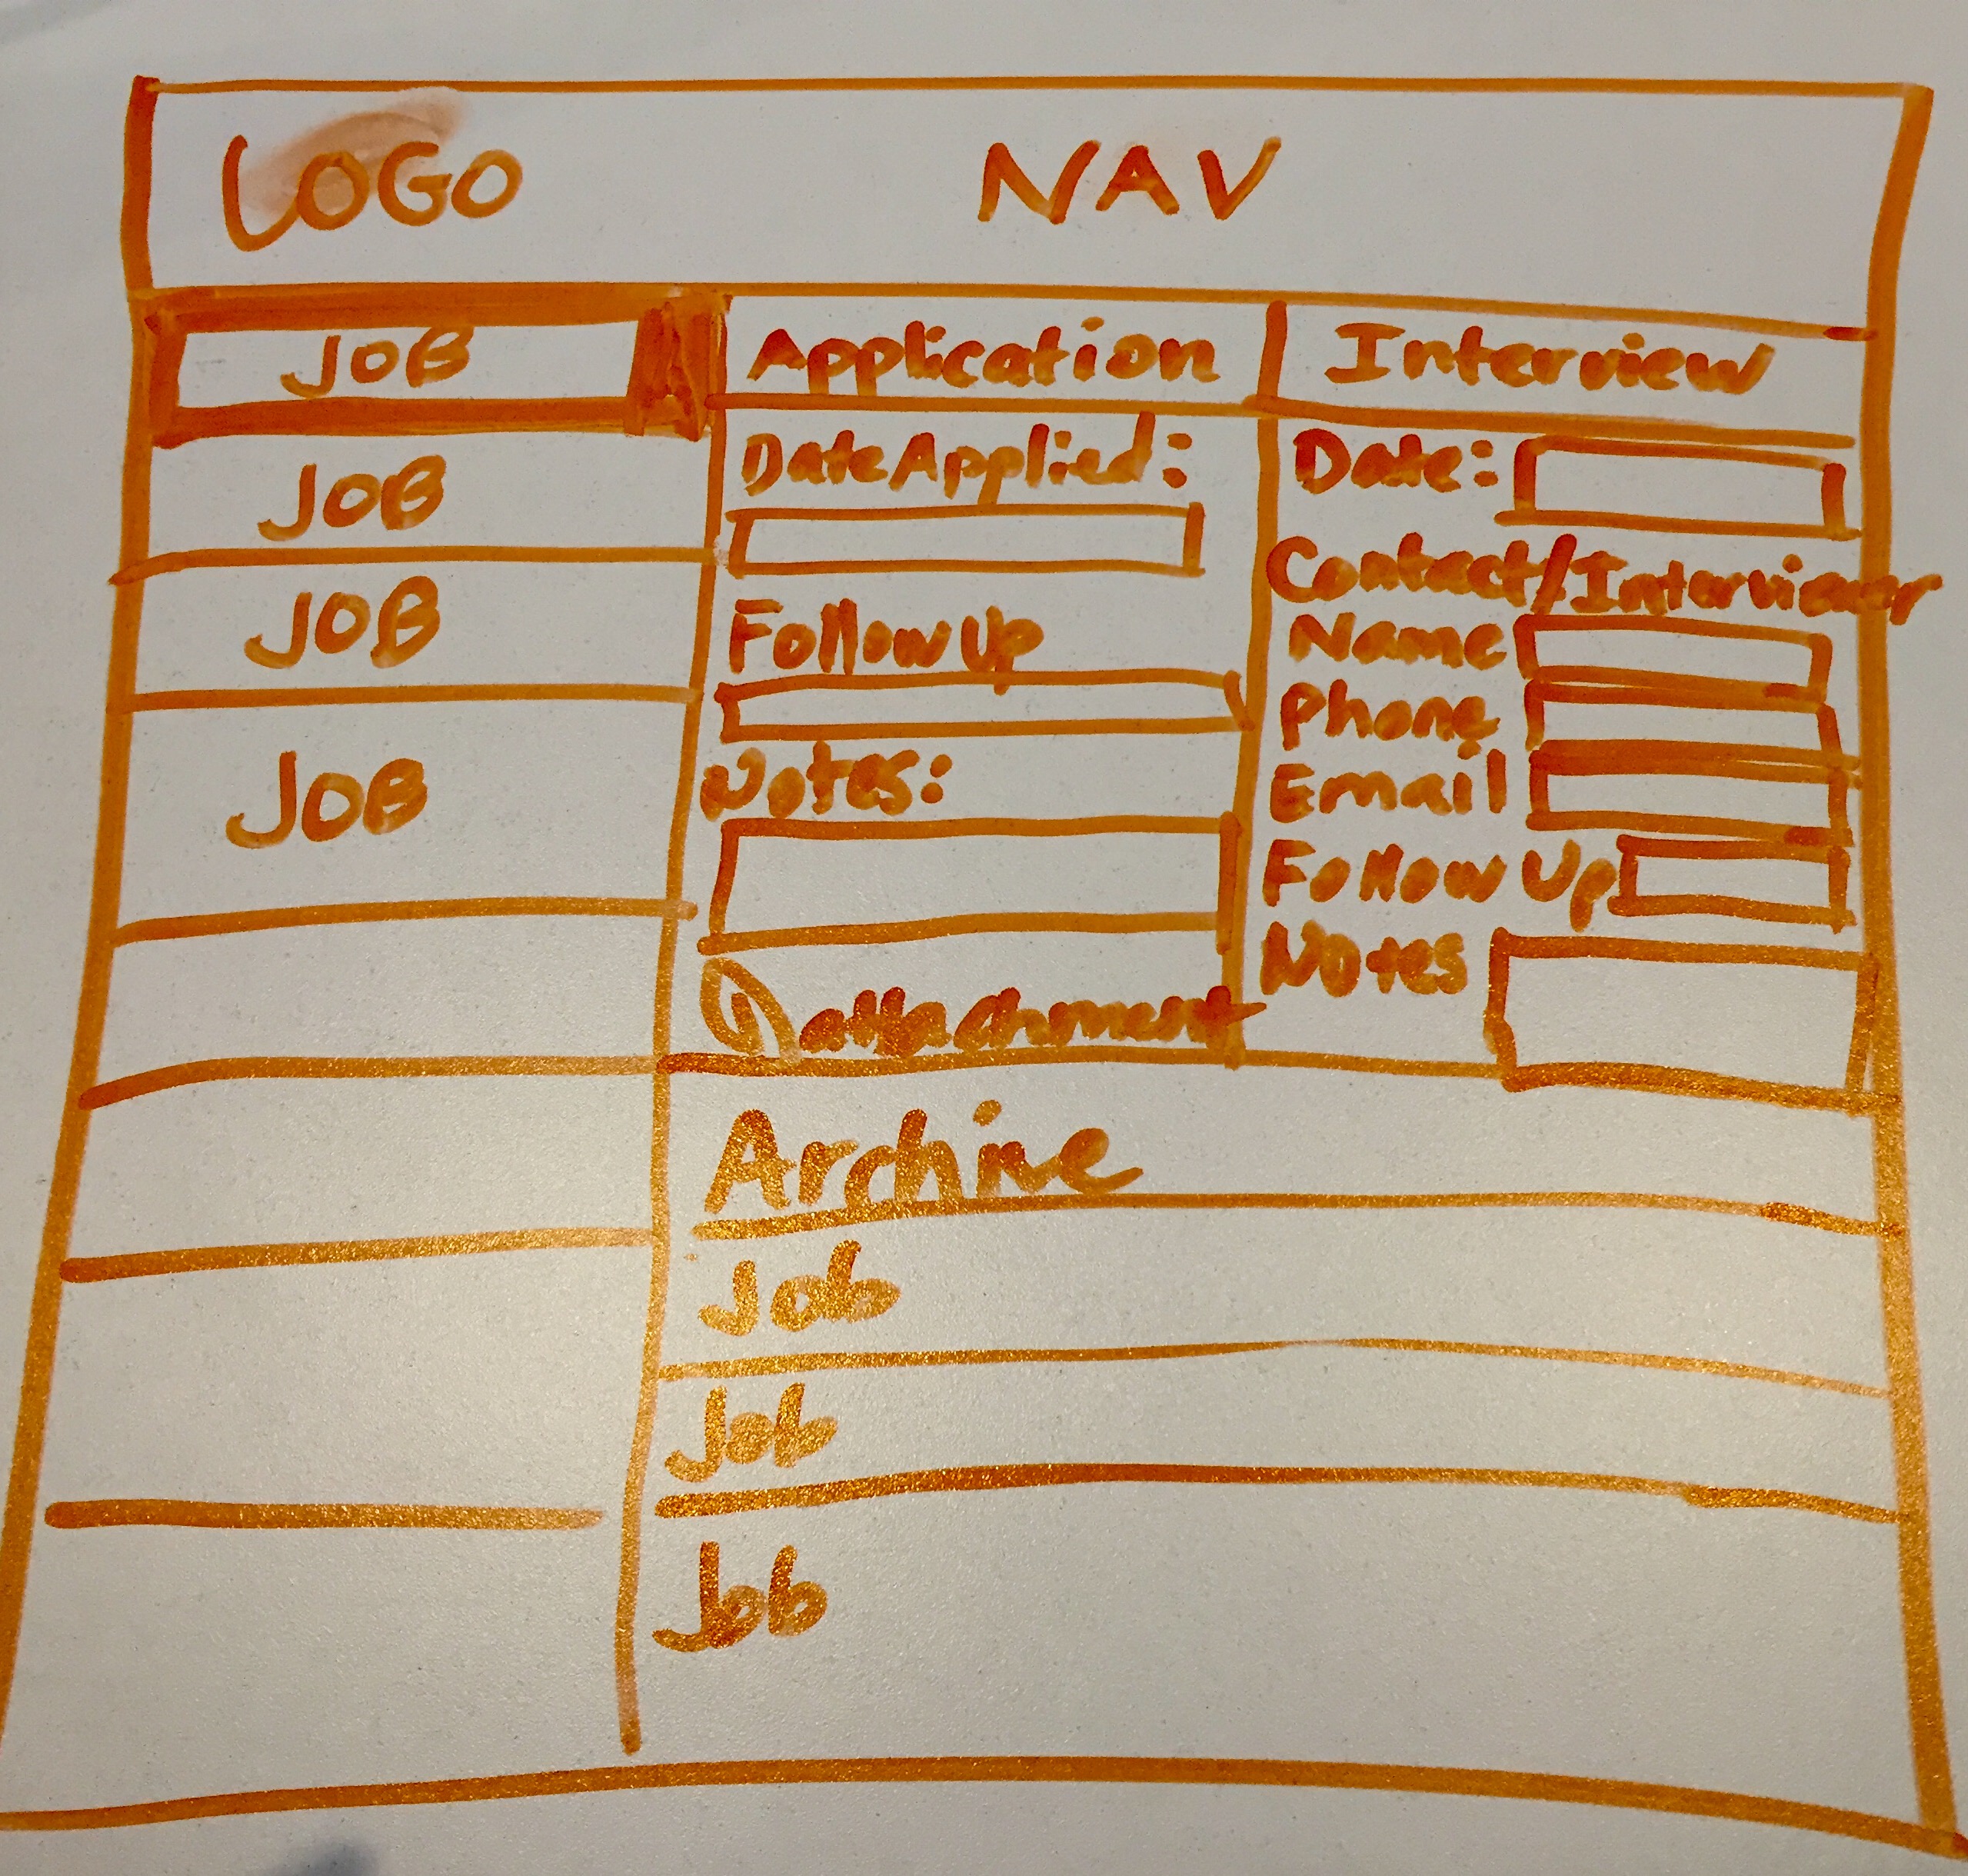 LOGO NAV
JOB
JOB
JOB
JOB
Application
Date Applied:
Follow Up
Notes:
attachment
Interview
Date:
Contact/Interviewer
Name
Phone
Email
Follow Up
Notes
Archive
Job
Job
Job